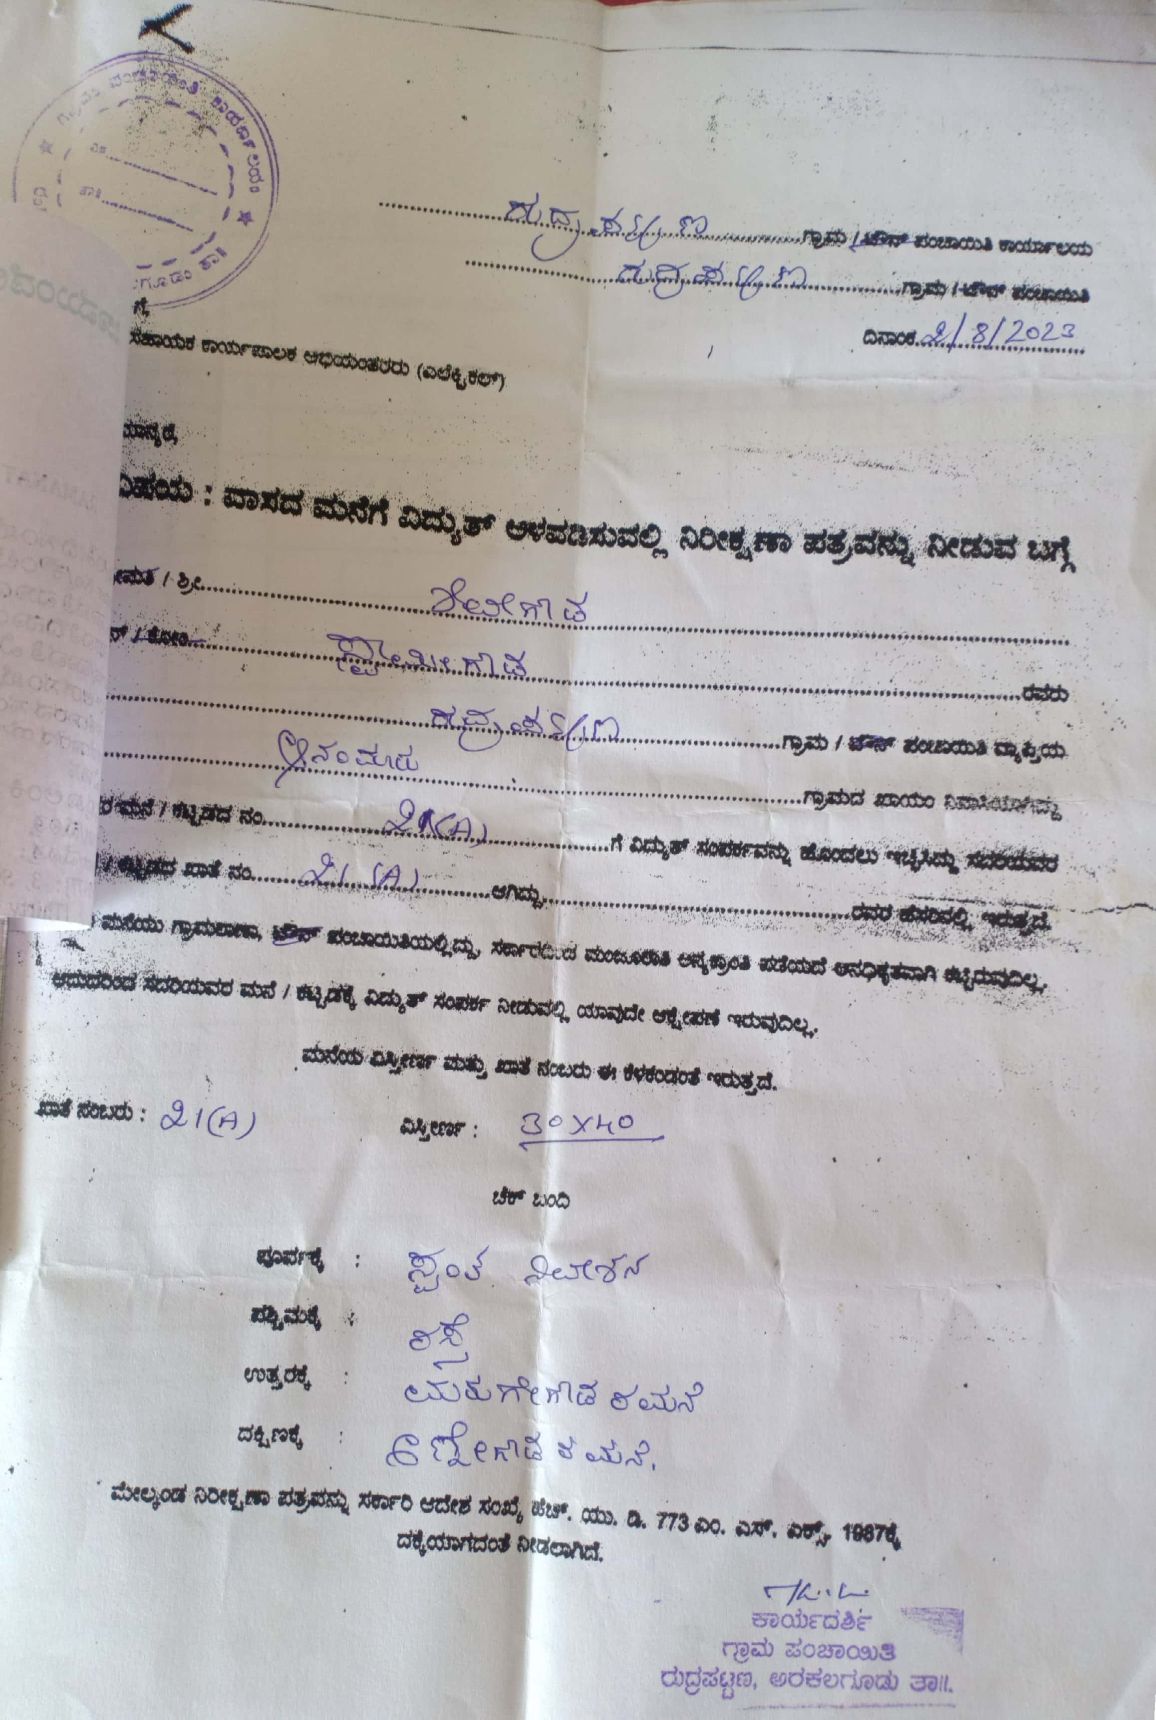 ಗ್ರಾಮ ಪಂಚಾಯಿತಿ ಕಾರ್ಯಾಲಯ
ರುದ್ರಪಟ್ಟಣ ಗ್ರಾಮ / ಟೌನ್ ಪಂಚಾಯಿತಿ ಕಾರ್ಯಾಲಯ
ರುದ್ರಪಟ್ಟಣ ಗ್ರಾಮ / ಟೌನ್ ಪಂಚಾಯಿತಿ
ದಿನಾಂಕ 2/8/2023
ಗೆ,
ಸಹಾಯಕ ಕಾರ್ಯಪಾಲಕ ಅಭಿಯಂತರರು (ಎಲೆಕ್ಟ್ರಿಕಲ್)
ಮಾನ್ಯರೆ,
ವಿಷಯ : ವಾಸದ ಮನೆಗೆ ವಿದ್ಯುತ್ ಅಳವಡಿಸುವಲ್ಲಿ ನಿರೀಕ್ಷಣಾ ಪತ್ರವನ್ನು ನೀಡುವ ಬಗ್ಗೆ
/ ಶ್ರೀ
ಸ್ವಾಮೀಗೌಡ ರವರು
ರುದ್ರಪಟ್ಟಣ ಗ್ರಾಮ / ಟೌನ್ ಪಂಚಾಯಿತಿ ವ್ಯಾಪ್ತಿಯ
ಗ್ರಾಮದ ಖಾಯಂ
ರ ಮನೆ / ಕಟ್ಟಡದ ನಂ 21(A) ಗೆ ವಿದ್ಯುತ್ ಸಂಪರ್ಕವನ್ನು ಹೊಂದಲು ಇಚ್ಛಿಸಿದ್ದು ಸದರಿಯವರ
/ ಕಟ್ಟಡದ ಖಾತೆ ನಂ 21 (A) ಆಗಿದ್ದು ರವರ ಹೆಸರಿನಲ್ಲಿ ಇರುತ್ತದೆ.
ಮನೆಯು ಗ್ರಾಮಠಾಣಾ, ಟೌನ್ ಪಂಚಾಯಿತಿಯಲ್ಲಿದ್ದು, ಸರ್ಕಾರದಿಂದ ಮಂಜೂರಾತಿ ಅನ್ಯಕ್ರಾಂತಿ ಪಡೆಯದೆ ಅನಧಿಕೃತವಾಗಿ ಕಟ್ಟಿರುವುದಿಲ್ಲ.
ಆದುದರಿಂದ ಸದರಿಯವರ ಮನೆ / ಕಟ್ಟಡಕ್ಕೆ ವಿದ್ಯುತ್ ಸಂಪರ್ಕ ನೀಡುವಲ್ಲಿ ಯಾವುದೇ ಆಕ್ಷೇಪಣೆ ಇರುವುದಿಲ್ಲ.
ಮನೆಯ ವಿಸ್ತೀರ್ಣ ಮತ್ತು ಖಾತೆ ನಂಬರು ಈ ಕೆಳಕಂಡಂತೆ ಇರುತ್ತದೆ.
ಖಾತೆ ನಂಬರು : 21(A) ವಿಸ್ತೀರ್ಣ : 30X40
ಚೆಕ್ ಬಂದಿ
ಪೂರ್ವಕ್ಕೆ : ಸ್ವಂತ ನಿವೇಶನ
ಪಶ್ಚಿಮಕ್ಕೆ : ರಸ್ತೆ
ಉತ್ತರಕ್ಕೆ : ಮನೆ
ದಕ್ಷಿಣಕ್ಕೆ : ಅಣ್ಣೇಗೌಡರ ಮನೆ.
ಮೇಲ್ಕಂಡ ನಿರೀಕ್ಷಣಾ ಪತ್ರವನ್ನು ಸರ್ಕಾರಿ ಆದೇಶ ಸಂಖ್ಯೆ ಹೆಚ್. ಯು. ಡಿ. 773 ಎಂ. ಎಸ್. ಎಕ್ಸ್. 1987ಕ್ಕೆ
ದಕ್ಕೆಯಾಗದಂತೆ ನೀಡಲಾಗಿದೆ.
ಕಾರ್ಯದರ್ಶಿ
ಗ್ರಾಮ ಪಂಚಾಯಿತಿ
ರುದ್ರಪಟ್ಟಣ, ಅರಕಲಗೂಡು ತಾ||.